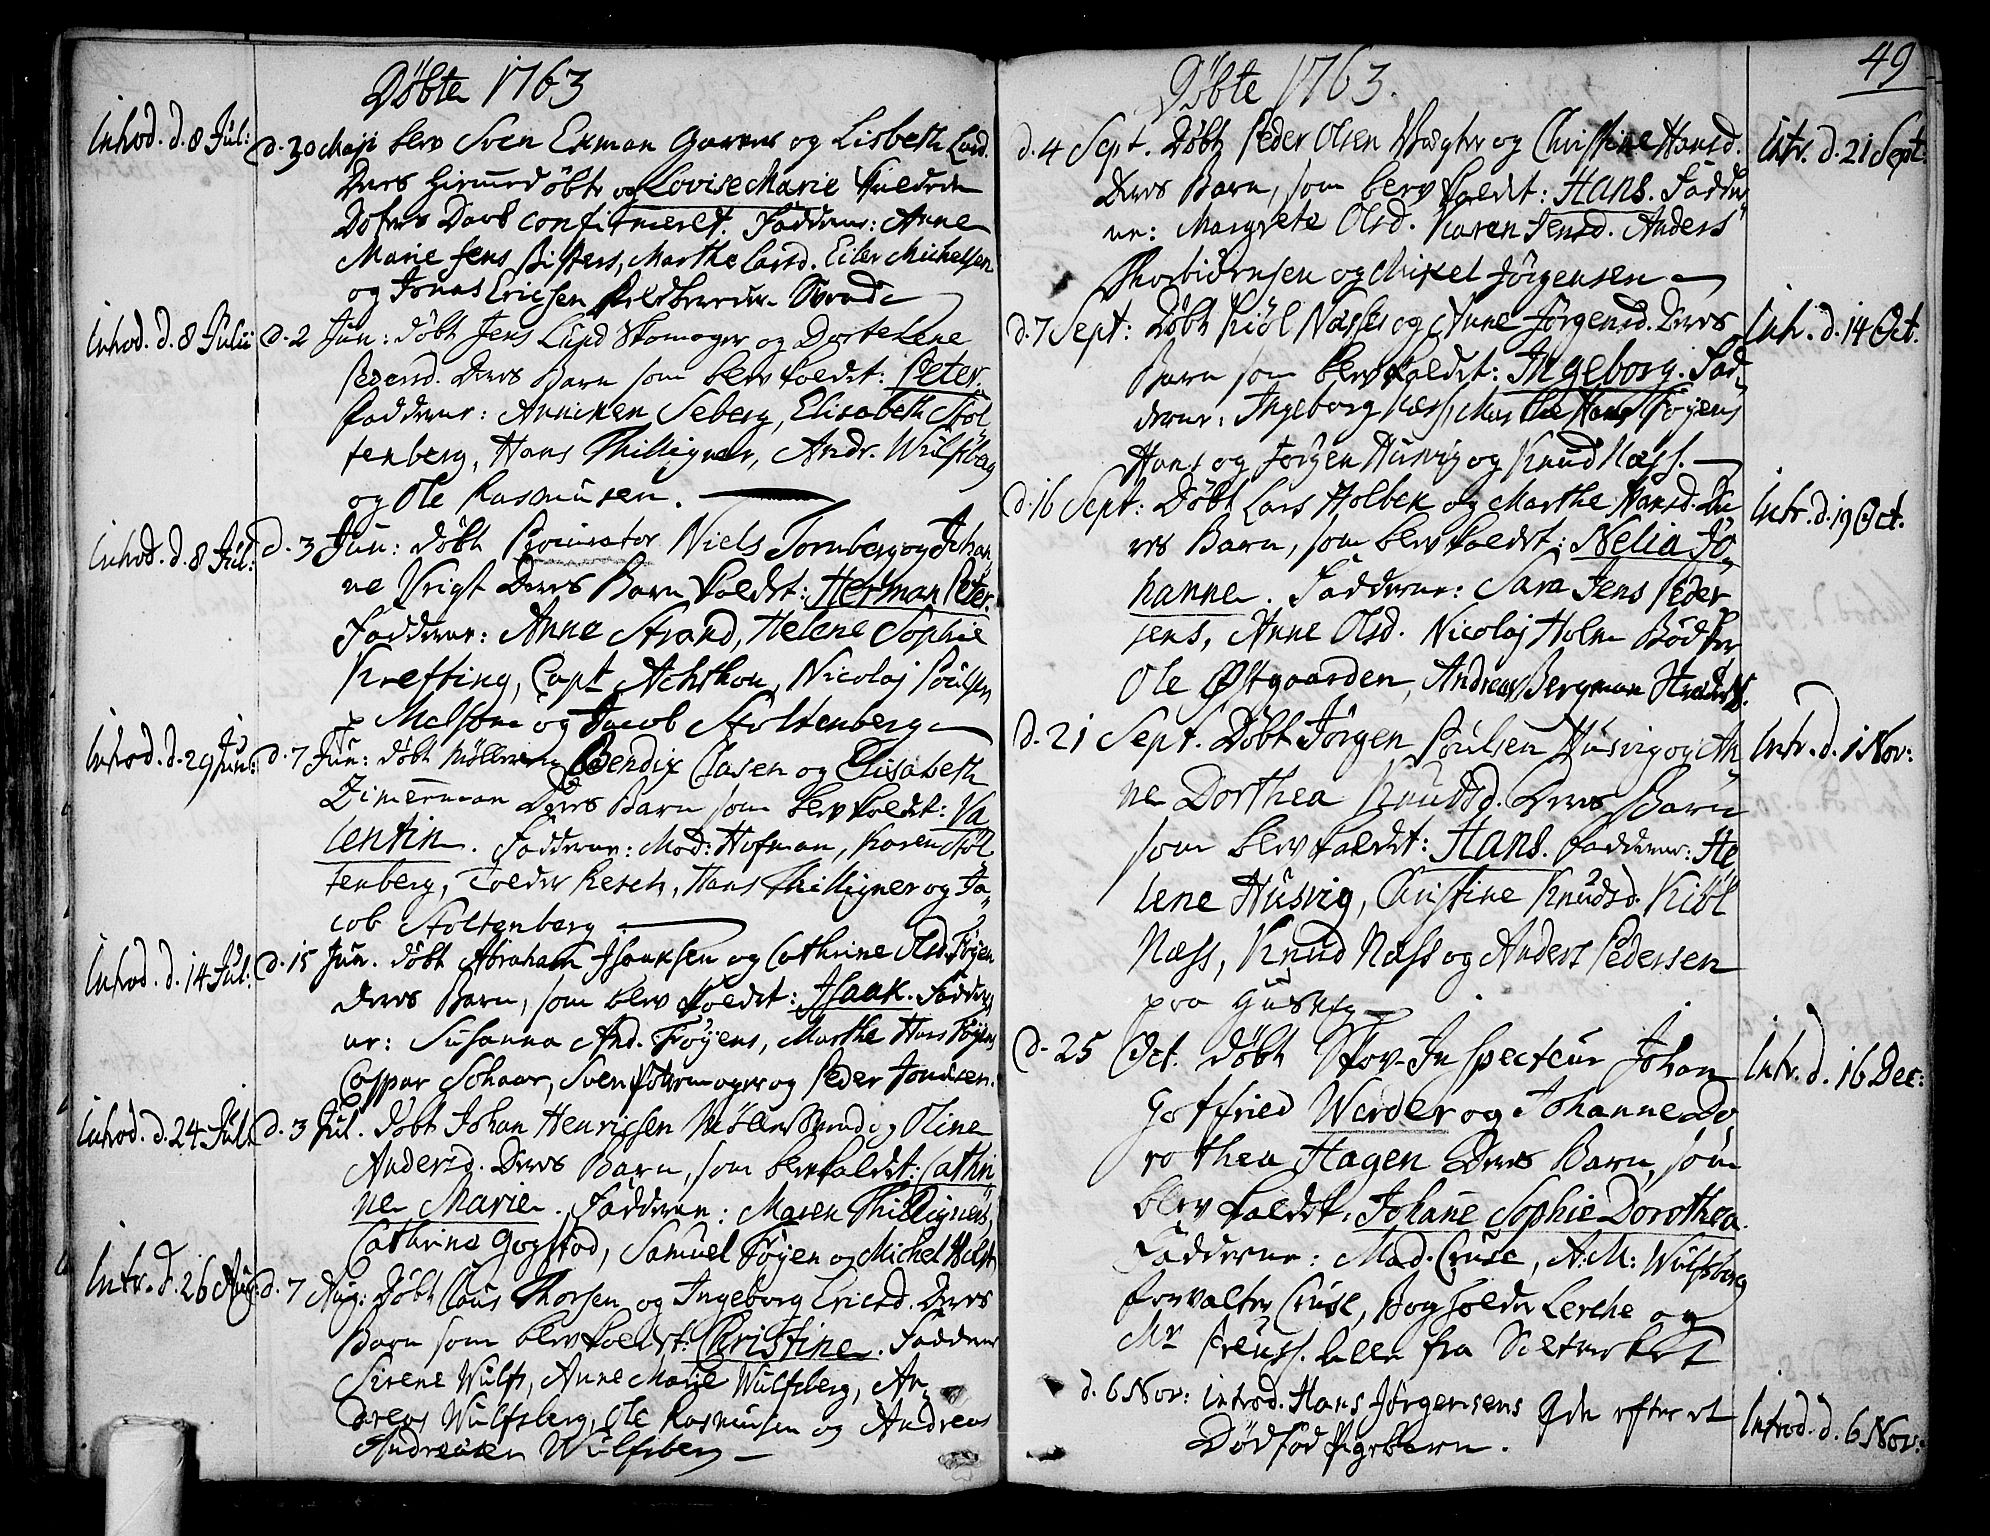 Döbte 1763
Introd. d. 8 Jul:
d. 30 Maji blev Sven Exman Garver og Lisbeth Larsd.
Deres hiemmedöbte og Lovise Marie kaldede
Dotters Daab confirmeret. Faddere: Anne
Marie Jens Bissers, Marthe Larsd. Eiler Michelsen
og Jonas Ericsen
Introd. d. 8 Julii
d. 2 Jun: döbt Jens Lund Skomager og Dorte Lene
Pedersd. Deres Barn som blev kaldet: Peter.
Faddere: Anniken Seberg, Elisabeth Stol
tenberg, Hans Thilligner, Andr. Wulfsberg
og Ole Rasmusen.
Introd. d. 8 Jul:
d. 3 Jun: döbt Procurator Niels Tornberg og Johan
ne Vrigt Deres Barn kaldet: Herman Peter.
Faddere: Anne Strand, Helene Sophie
Krefting, Capt. Achthon, Nicolaj Poulsen
Melsom og Jacob Stoltenberg
Introd. d. 29 Jun:
d. 7 Jun: döbt Bendix Clasen og Elisabeth
Zimerman Deres Barn som blev kaldet: Va
lentin. Faddere: Mad: Hofman, Karen Stol
tenberg, Tolder Resch, Hans Thilligner og Ja
cob Stoltenberg
Introd. d. 14 Jul:
d. 15 Jun. döbt Abraham Isaaksen og Cathrine Olsd. Föyen
deres Barn, som blev kaldet: Isaak. Fadde
rer: Susanna And. Föyens, Marthe Hans Föyens
Caspar Schaar, Sven og Peder Jonasen.
Introd. d. 24 Jul.
d. 3 Jul. Döbt Johan Henricsen Möllersvend og Oline
Andersd. Deres Barn, som blev kaldet: Cathri
ne Marie. Faddere: Maren Thilligners,
Cathrine Gogstad, Samuel Föyen og Michel Holst
Intr. d. 26 Aug:
d. 7 Aug: Döbt Claus Thorsen og Ingeborg Ericsd. Deres
Barn som blev kaldet: Christine. Faddere
Serene Wulfs, Anne Marie Wulfsberg, An
dreas Wulfsberg, Ole Rasmusen og Andreas
Andreasen Wulfsberg
49
Döbte 1763.
d. 4 Sept. Döbt Peder Olsen Vægter og Christine Hansd.
Deres Barn, som blev kaldet: Hans. Fadde
re: Margrete Olsd. Karen Jensd. Anders
Thorbiörnsen og Mikkel Jörgensen
Intr. d. 21 Sept.
d. 7 Sept: Döbt Kiöl Næss og Anne Jörgensd. Deres
Barn som blev kaldet: Ingeborg. Fad
derer: Ingeborg Næss, Marthe Hans Föyens
Hans og Jörgen Husvig og Knud Næss.
Intr. d. 14 Oct.
d. 16 Sept: Döbt Lars Holbek og Marthe Hansd. De
res Barn, som blev kaldet: Nelia Jo
hanne. Faddere: Sara Jens Peder
sens, Anne Olsd. Nicolaj Holm Bödker
Ole Östgaarden, Andreas Bergman
Intr. d. 19 Oct.
d. 21 Sept. Döbt Jörgen Poulsen Husvig og An
ne Dorthea Knudsd. Deres Barn
som blev kaldet: Hans. Faddere: He
lene Husvig, Christine Knudsd. Kiöl
Næss, Knud Næss og Anders Pedersen
paa
Intr. d. 1 Nov:
d. 25 Oct. Döbt Skov-Inspecteur Johan
Gotfried Werder og Johanne Do
rothea Hagen Deres Barn, som
blev kaldet: Johane Sophie Dorothea.
Faddere: Mad. Cruse, A.M: Wulfsberg
Forvalter Cruse, Bogholder Lerche og
Mr Preuss. alle fra Saltverket
Intr. d. 16 Dec:
d. 6 Nov: introd. Hans Jörgensens efter et
Dödfød Pigebarn.
Introd. d. 6 Nov: